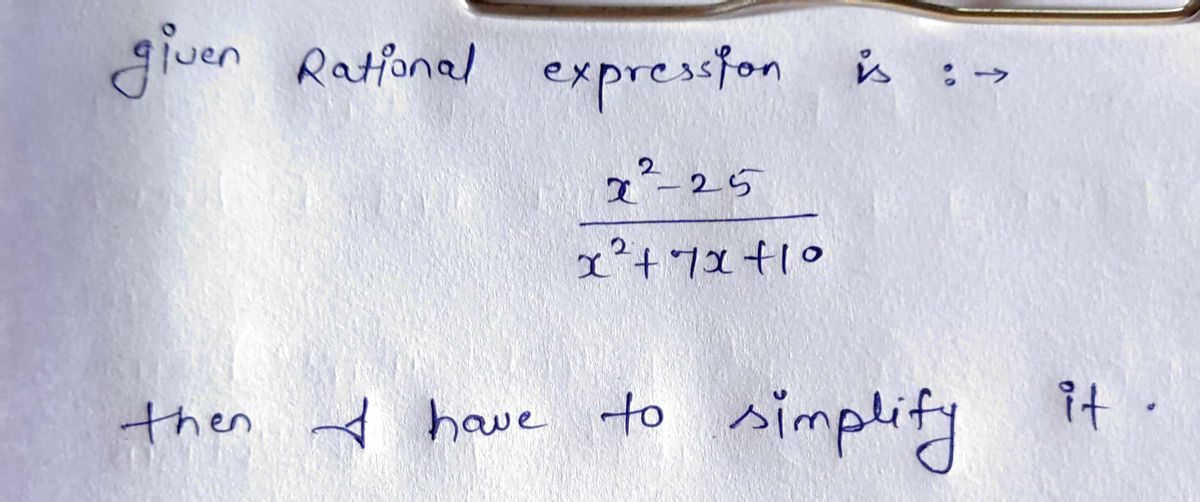 given Rational expression is :→
x²-25
x²+7x+10
then I have to simplify it.